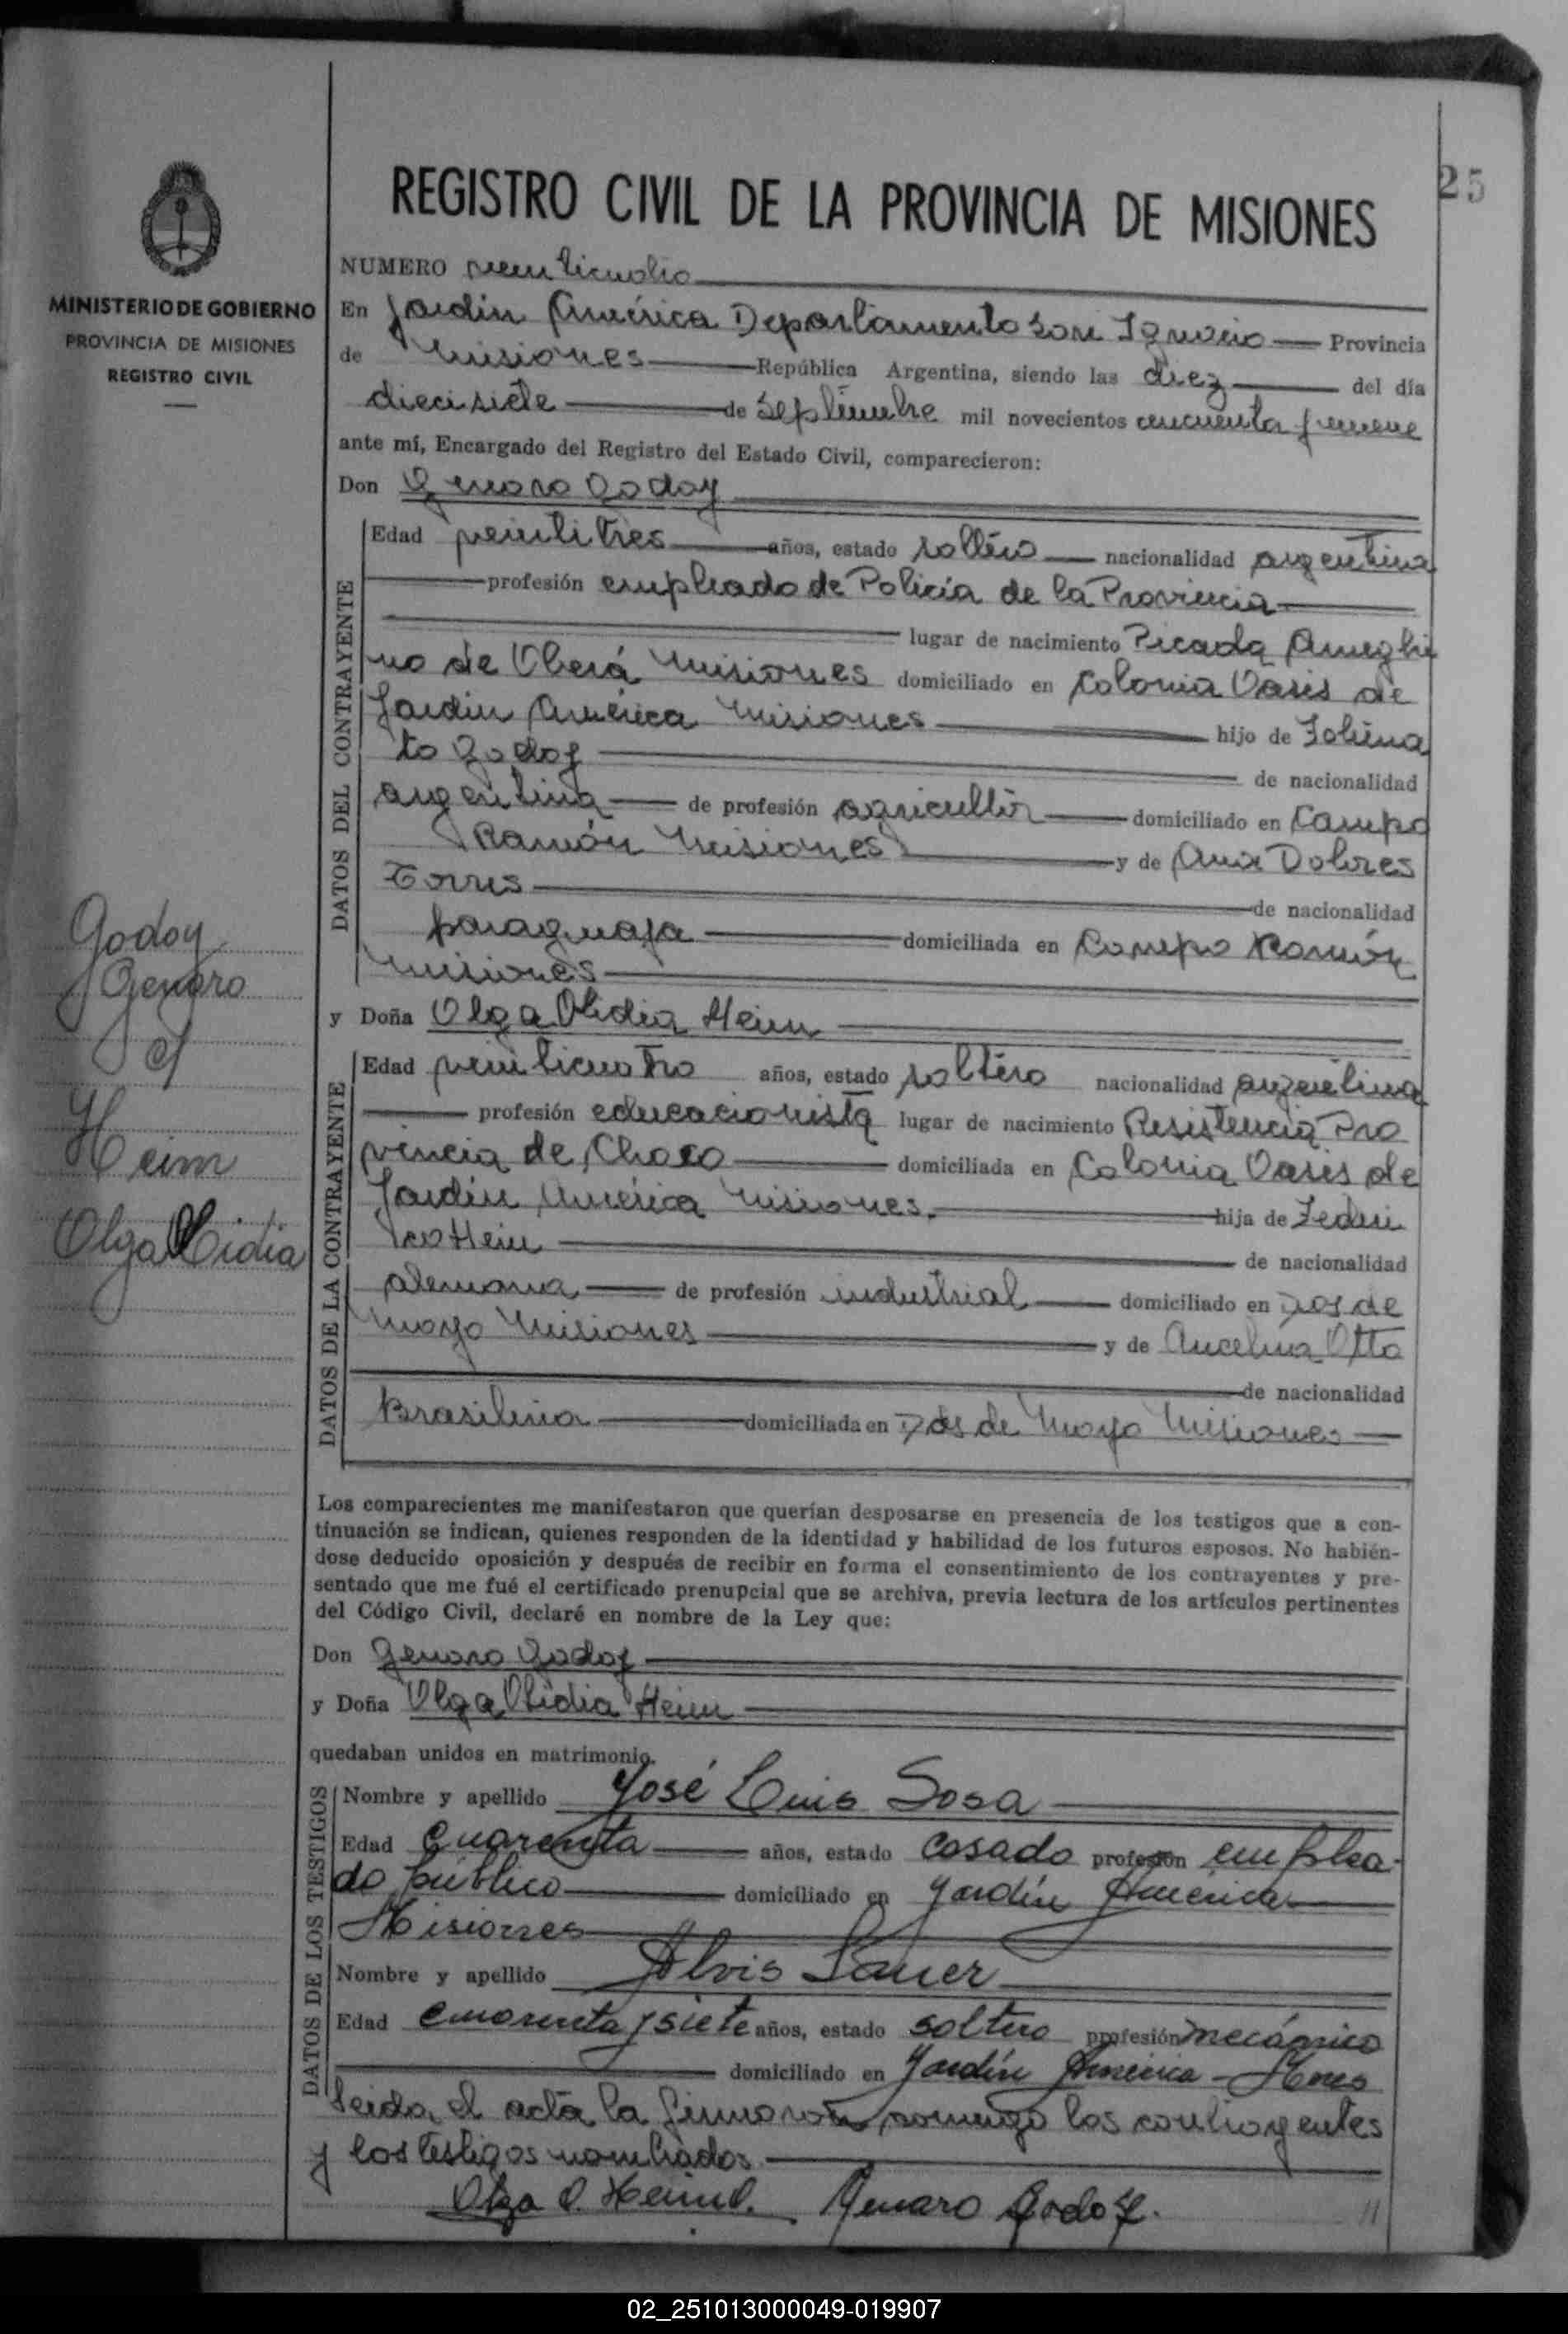 25
MINISTERIO DE GOBIERNO
PROVINCIA DE MISIONES
REGISTRO CIVIL
REGISTRO CIVIL DE LA PROVINCIA DE MISIONES
NUMERO veinticuatro
En Jardín América Departamento San Ignacio Provincia
de Misiones República Argentina, siendo las diez del día
diecisiete de Septiembre mil novecientos cincuenta y nueve
ante mí, Encargado del Registro del Estado Civil, comparecieron:
Don Genaro Godoy
DATOS DEL CONTRAYENTE
Edad veintitres años, estado soltero nacionalidad argentina
profesión empleado de Policía de la Provincia
lugar de nacimiento Picada Ameghi
no de Oberá Misiones domiciliado en Colonia Oasis de
Jardín América Misiones hijo de
to Godoy de nacionalidad
argentina de profesión agricultor domiciliado en Campo
Ramón Misiones y de Ana Dolores
Torres de nacionalidad
paraguaya domiciliada en Campo Ramón
Misiones
y Doña Olga Olidia Heim
DATOS DE LA CONTRAYENTE
Edad veinticuatro años, estado soltera nacionalidad argentina
profesión educacionista lugar de nacimiento Resistencia Pro
vincia de Chaco domiciliada en Colonia Oasis de
Jardín América Misiones. hija de Federi
co Heim de nacionalidad
alemana de profesión industrial domiciliado en Dos de
Mayo Misiones y de Ancelina Otto
de nacionalidad
Brasilera domiciliada en Dos de Mayo Misiones
Los comparecientes me manifestaron que querían desposarse en presencia de los testigos que a con-
tinuación se indican, quienes responden de la identidad y habilidad de los futuros esposos. No habién-
dose deducido oposición y después de recibir en forma el consentimiento de los contrayentes y pre-
sentado que me fué el certificado prenupcial que se archiva, previa lectura de los artículos pertinentes
del Código Civil, declaré en nombre de la Ley que:
Don Genaro Godoy
y Doña Olga Olidia Heim
quedaban unidos en matrimonio.
DATOS DE LOS TESTIGOS
Nombre y apellido José Luis Sosa
Edad cuarenta años, estado casado profesión emplea-
do público domiciliado en Jardín América
Misiones
Nombre y apellido Alvis Sauer
Edad cuarenta y siete años, estado soltero profesión mecánico
domiciliado en Jardín América - Mnes
Leida el acta la firmaron conmigo los contrayentes
y los testigos nombrados
Olga O. Heim Genaro Godoy.
11
Godoy
Genaro
c/
Heim
Olga Olidia
02_251013000049-019907